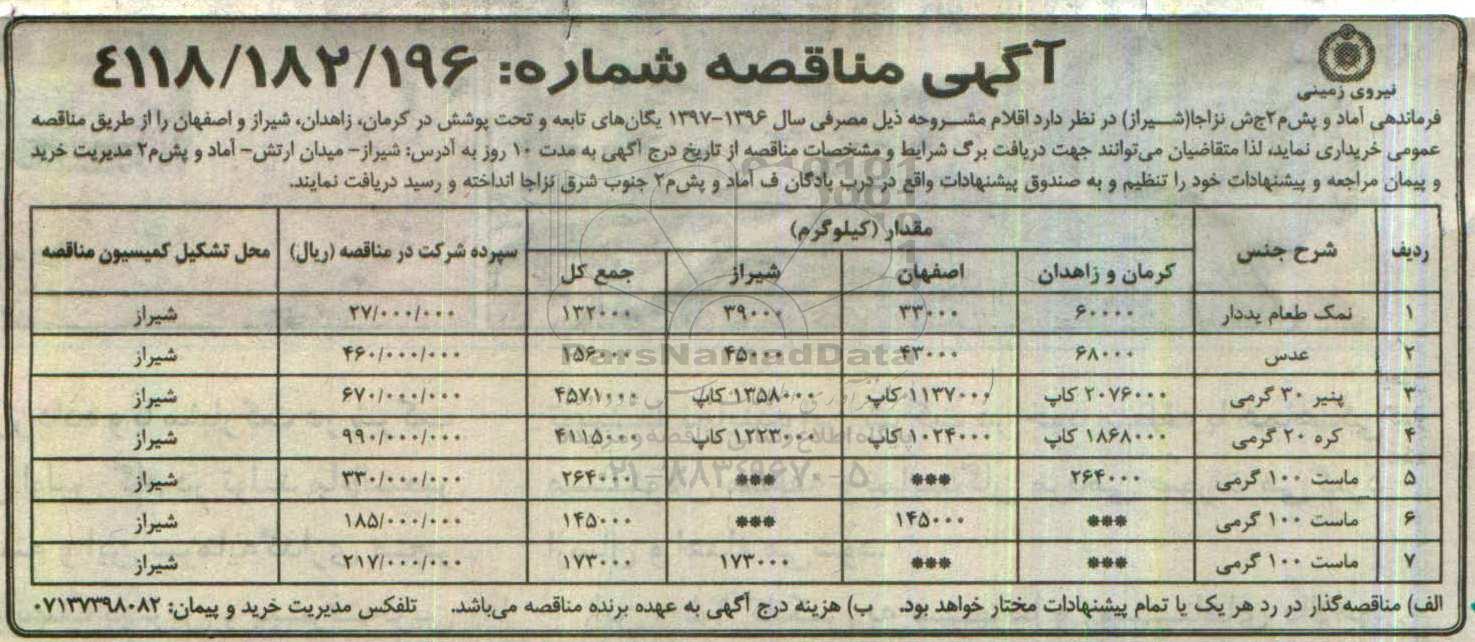 نیروی زمینی
آگهی مناقصه شماره: ٤١١٨/١٨٢/١٩۶
فرماندهی آماد و پش‌م۲ج‌ش نزاجا(شیراز) در نظر دارد اقلام مشروحه ذیل مصرفی سال ۱۳۹۶-۱۳۹۷ یگان‌های تابعه و تحت پوشش در کرمان، زاهدان، شیراز و اصفهان را از طریق مناقصه
عمومی خریداری نماید، لذا متقاضیان می‌توانند جهت دریافت برگ شرایط و مشخصات مناقصه از تاریخ درج آگهی به مدت ۱۰ روز به آدرس: شیراز- میدان ارتش- آماد و پش‌م۲ مدیریت خرید
و پیمان مراجعه و پیشنهادات خود را تنظیم و به صندوق پیشنهادات واقع در درب پادگان ف آماد و پش‌م۲ جنوب شرق نزاجا انداخته و رسید دریافت نمایند.
ردیف شرح جنس مقدار (کیلوگرم) سپرده شرکت در مناقصه (ریال) محل تشکیل کمیسیون مناقصه
کرمان و زاهدان اصفهان شیراز جمع کل
۱ نمک طعام یددار ۶۰۰۰۰ ۳۳۰۰۰ ۳۹۰۰۰ ۱۳۲۰۰۰ ۲۷/۰۰۰/۰۰۰ شیراز
۲ عدس ۶۸۰۰۰ ۴۳۰۰۰ ۴۵۰۰۰ ۱۵۶۰۰۰ ۴۶۰/۰۰۰/۰۰۰ شیراز
۳ پنیر ۳۰ گرمی ۲۰۷۶۰۰۰ کاپ ۱۱۳۷۰۰۰ کاپ ۱۳۵۸۰۰۰ کاپ ۴۵۷۱۰۰۰ ۶۷۰/۰۰۰/۰۰۰ شیراز
۴ کره ۲۰ گرمی ۱۸۶۸۰۰۰ کاپ ۱۰۲۴۰۰۰ کاپ ۱۲۲۳۰۰۰ کاپ ۴۱۱۵۰۰۰ ۹۹۰/۰۰۰/۰۰۰ شیراز
۵ ماست ۱۰۰ گرمی ۲۶۴۰۰۰ *** *** ۲۶۴۰۰۰ ۳۳۰/۰۰۰/۰۰۰ شیراز
۶ ماست ۱۰۰ گرمی *** ۱۴۵۰۰۰ *** ۱۴۵۰۰۰ ۱۸۵/۰۰۰/۰۰۰ شیراز
۷ ماست ۱۰۰ گرمی *** *** ۱۷۳۰۰۰ ۱۷۳۰۰۰ ۲۱۷/۰۰۰/۰۰۰ شیراز
الف) مناقصه‌گذار در رد هر یک یا تمام پیشنهادات مختار خواهد بود. ب) هزینه درج آگهی به عهده برنده مناقصه می‌باشد. تلفکس مدیریت خرید و پیمان: ۰۷۱۳۷۳۹۸۰۸۲
ParsNamadData
۰۲۱-۸۸۳۴۹۶۷۰-۵